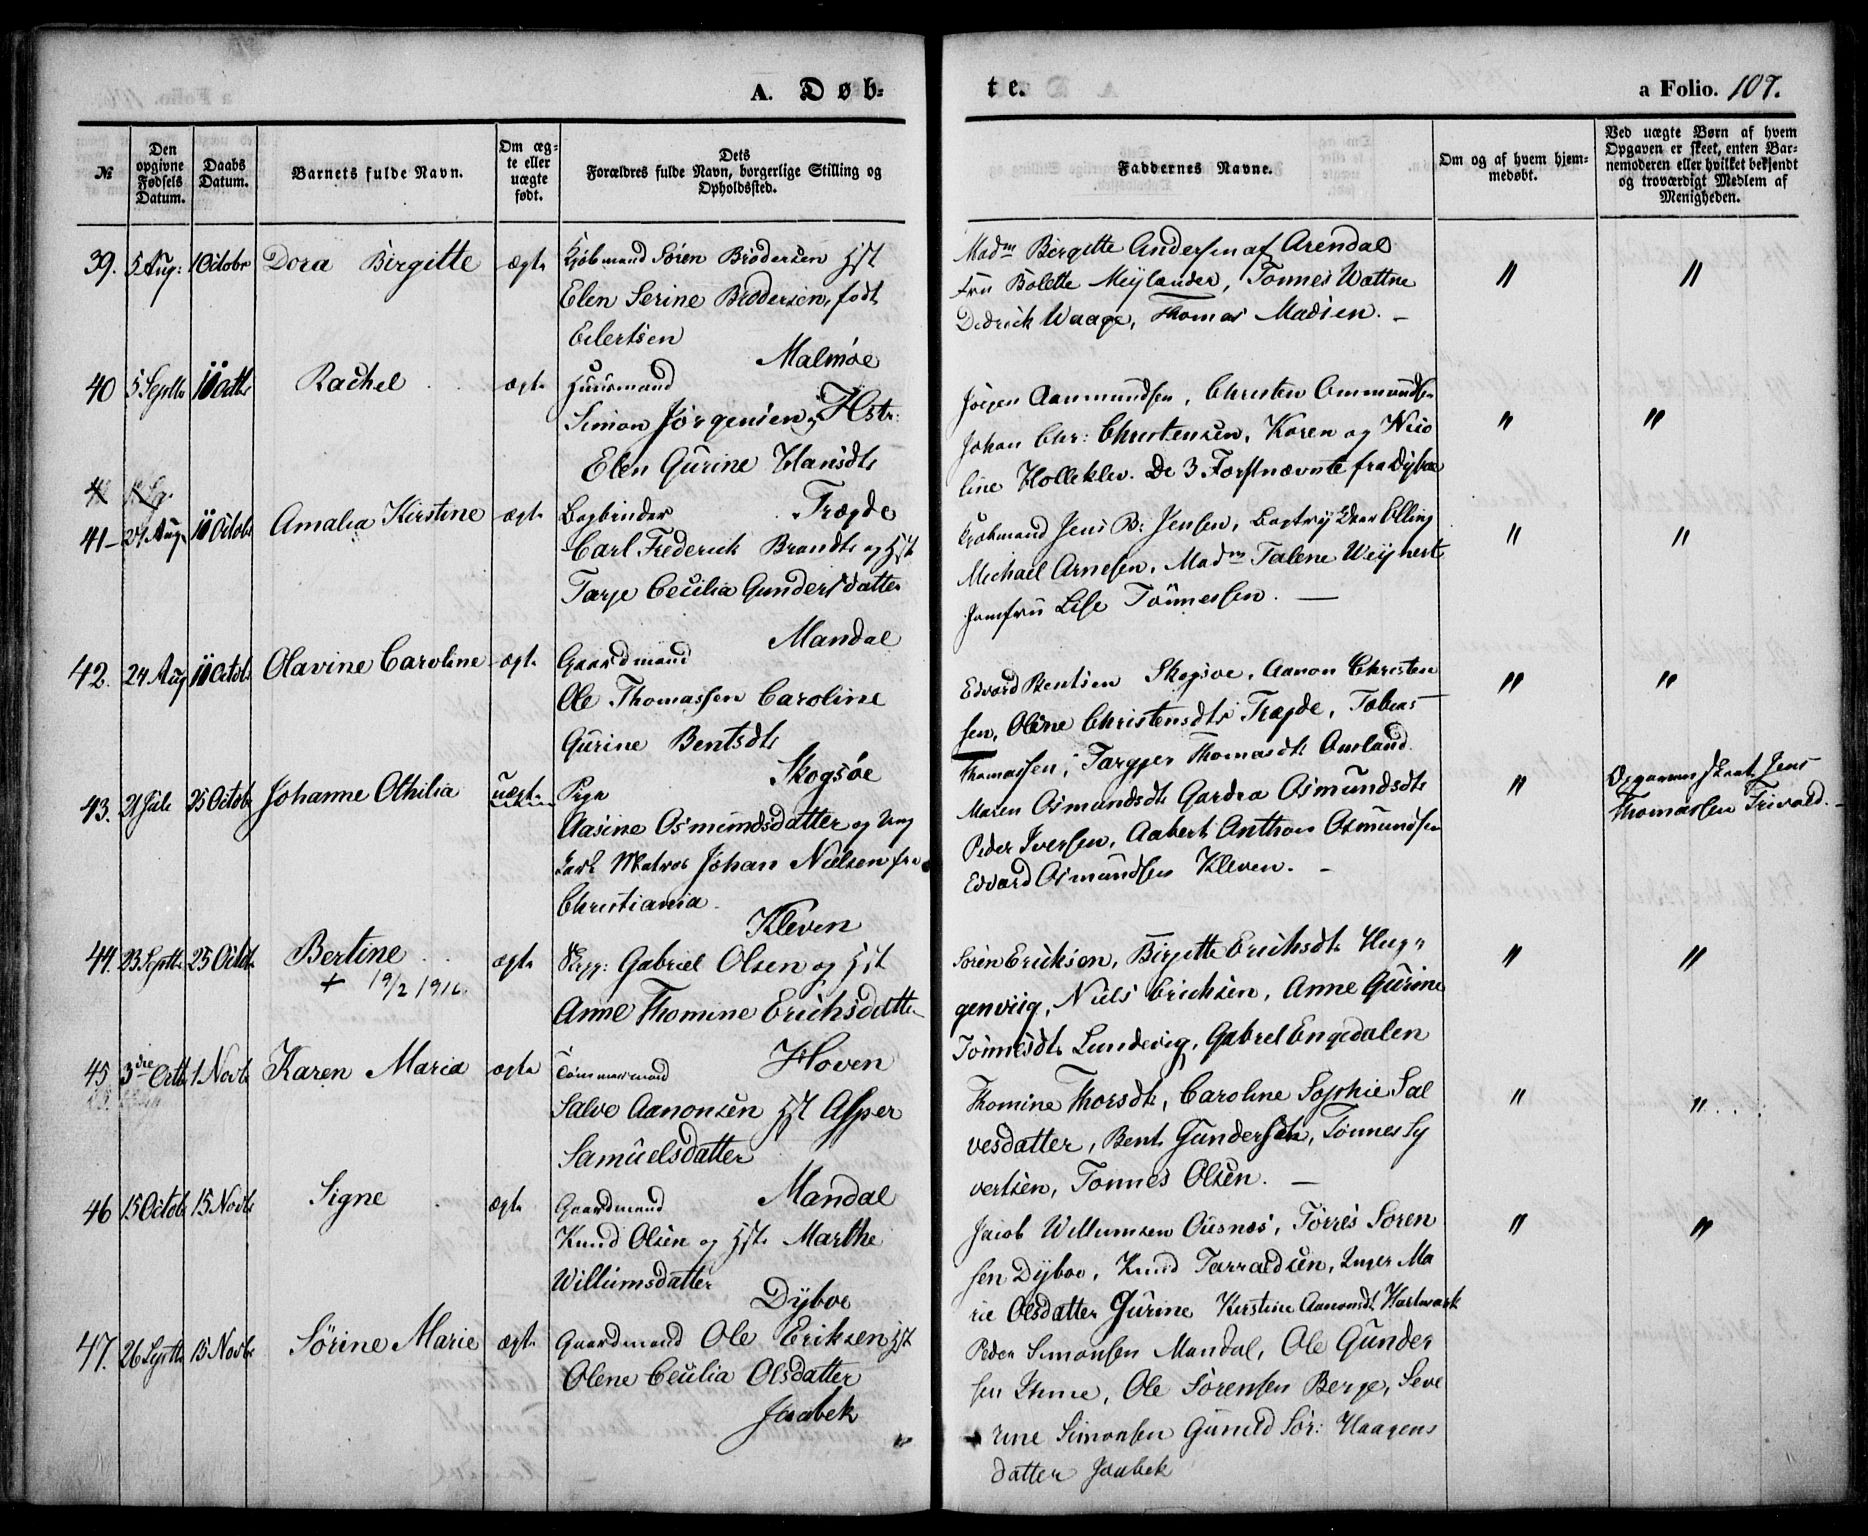 A. Døb=
te.
a Folio. 107.
№
Den opgivne Fødsels Datum.
Daabs Datum.
Barnets fulde Navn.
Om æg-
te eller
uægte
født.
Dets
Forældres fulde Navn, borgerlige Stilling og
Opholdssted.
Faddernes Navne.
Om og af hvem hjem-
medøbt.
Ved uægte Børn af hvem
Opgaven er skeet, enten Bar-
nemoderen eller hvilket bekjendt
og troværdigt Medlem af
Menigheden.
39. 5 Aug: 1 Octobr Dora Birgitte ægte Kjøbmand Søren Brødersen Hst
Elen Serine Brodersen, født
Eilertsen
Malmøe
Madm Birgitte Andersen af Arendal
Fru Bolette Meylander, Tønnes Wattne
Dedrick Waage, Thomas Madsen. –
" "
40 5 Septb Rachel ægte Huusmand
Simon Jørgensen og Hstr:
Elen Gurine Hansdt
Trægde
Jørgen Aanmundsen, Christen Ommundsen
Johan Chr: Christensen, Karen og Nico
line Holleklev. De 3 Førstnævnte fra Dyboe
" "
41– 27 Aug Octobr Amalia Kirstine ægte Bogbinder
Carl Frederick Brandt og Hst
Tarje Cecilia Gundersdatter
Mandal
Kjøbmand Jens B: Jensen, Bogtrykker Elling
Michael Arnesen, Madm Talene Weyhert
Jomfru Lise Tönnessen. —
" "
42. 24 Aug Octob Olavine Caroline ægte Gaardmand
Ole Thomassen Caroline
Gurine Bentsdt
Skogsøe
Edvard Bentsen Skogsøe, Aanon Christen
sen, Oline Christensdt Trægde, Tobias
Thomassen, Thomasdt
" "
43. 21 Juli 25 Octob Johanne Othilia uægte Pige
Aasine Osmundsdatter og Ung
karl Matros Johan Nielsen fra
Christiania.
Kleven
Maren Osmundsdt Osmundsdt
Peder Iversen, Aabert Anthon Osmundsen
Edvard Osmundsen Kleven. –
"
Opgaven skeet Jens
Thomassen Trivold. –
44. 23 Septb 25 Octb Bertine
+ 19/2 1916.
ægte Gabriel Olsen og Hst
Anne Thomine Erichsdatter
Hoven
Søren Ericksen, Birgitte Erichsdt Hug
genviig, Niels Ericksen, Anne Gurine
Tönnesdt Lundevig, Gabrel Engedalen
" "
45. 3die Octb 1 Novb Karen Maria ægte Tømmermand
Salve Aanonsen Hst Asper
Samuelsdatter
Mandal
Thomine Thorsdt, Caroline Sophie Sal
vesdatter, Bent Gundersen, Tønnes Sy
vertsen, Tonnes Olsen. —
" "
46 15 Octob 15 Novb Signe ægte Gaardmand
Knud Olsen og Hst. Marthe
Willumsdatter
Dyboe
Jacob Willumsen Ousnæs, Törres Soren
sen Dyboe, Knud Tarraldsen, Inger Ma
rie Olsdatter Gurine Kirstine Aanonsdt Hartmark
" "
47. 26 Septb 15 Novb Sörine Marie ægte Gaardmand Ole Eriksen Hst
Olene Cecilia Olsdatter
Jaabek
Peder Simonsen Mandal, Ole Gunder
sen Ihme, Ole Sörensen Berge, Seve
rine Simonsen Gunild Sör: Haagens
datter Jaabek